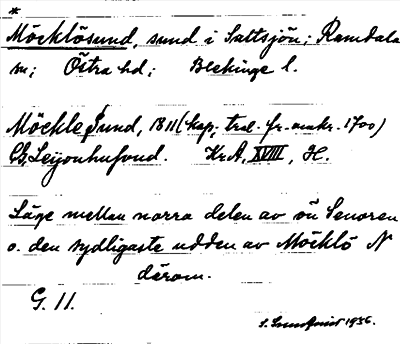 *
Möcklösund, sund i Saltsjön; Ramdala
sn; Östra hd; Blekinge l.
Möckle Sund, 1811 (kop. tral. fr. omkr. 1700)
CG. Leijonhufvud. Kr.A, XVIII, H.
Läge mellan norra delen av ön Senoren
o. den sydligaste udden av Möcklö N
därom.
G. 11.
S. 1936.